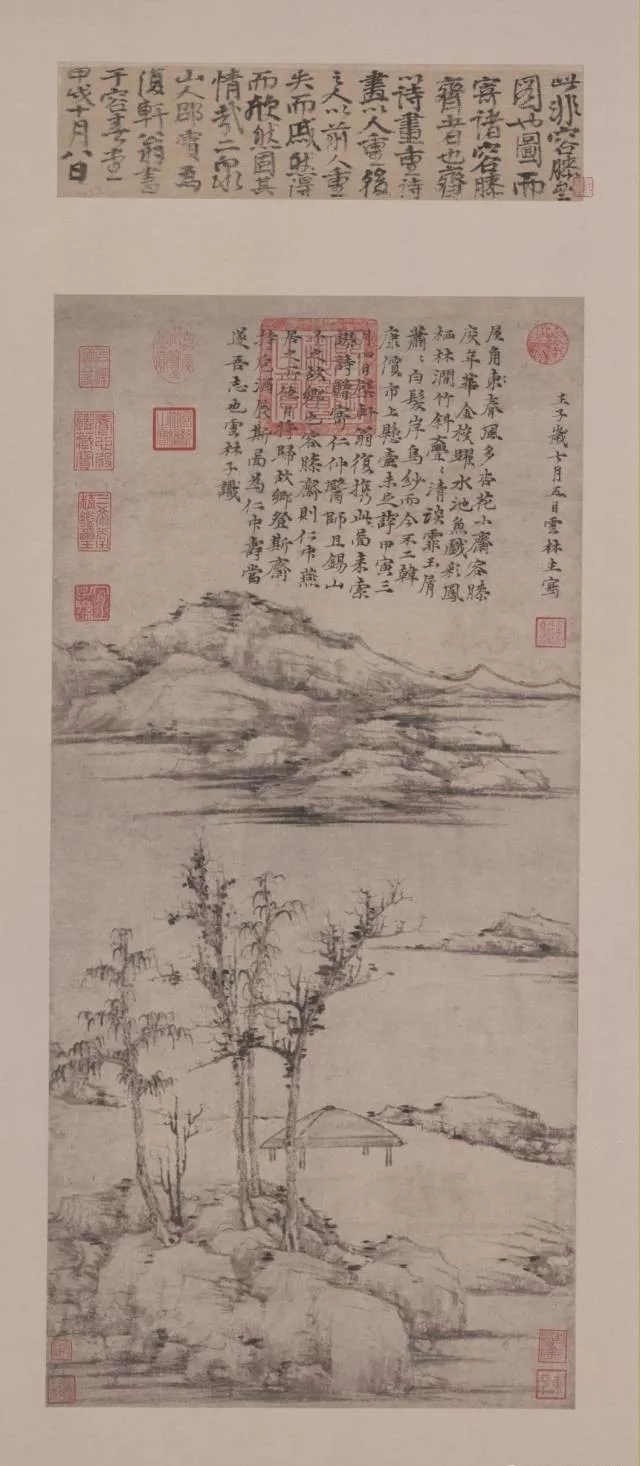 此非容膝齋
圖也圖而
寄諸容膝
齋者也齋
以詩畫重詩
畫以人重後
之人以前人重
失而戚然得
而欣然固其
情哉二泉
山人邵寶為
復軒翁書
于容春堂
甲戌十月八日
壬子歲七月五日雲林生寫
屋角東春風多杏花小齋容膝
度年華金梭躍水池魚戲彩鳳
栖林澗竹斜亹〻清談霏玉屑
蕭〻白髮岸烏紗而今不二韓
康價市上懸壺未足誇甲寅三
月四日檗軒翁復攜此圖來索
謬詩贈寄仁仲醫師且錫山
予之故鄉也容膝齋則仁仲燕
居之所他日將歸故鄉登斯齋
持卮酒展斯圖為仁仲壽當
遂吾志也雲林子識